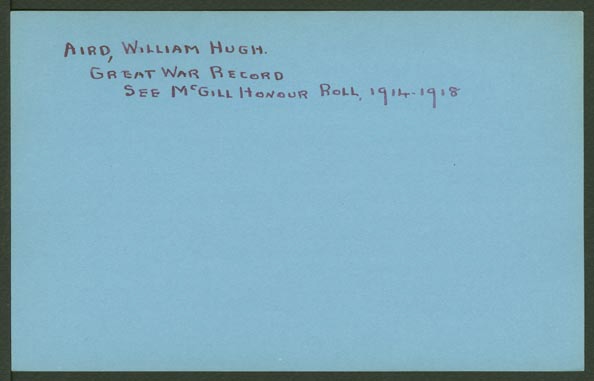 Aird, William Hugh.
Great War Record
See McGill Honour Roll, 1914-1918